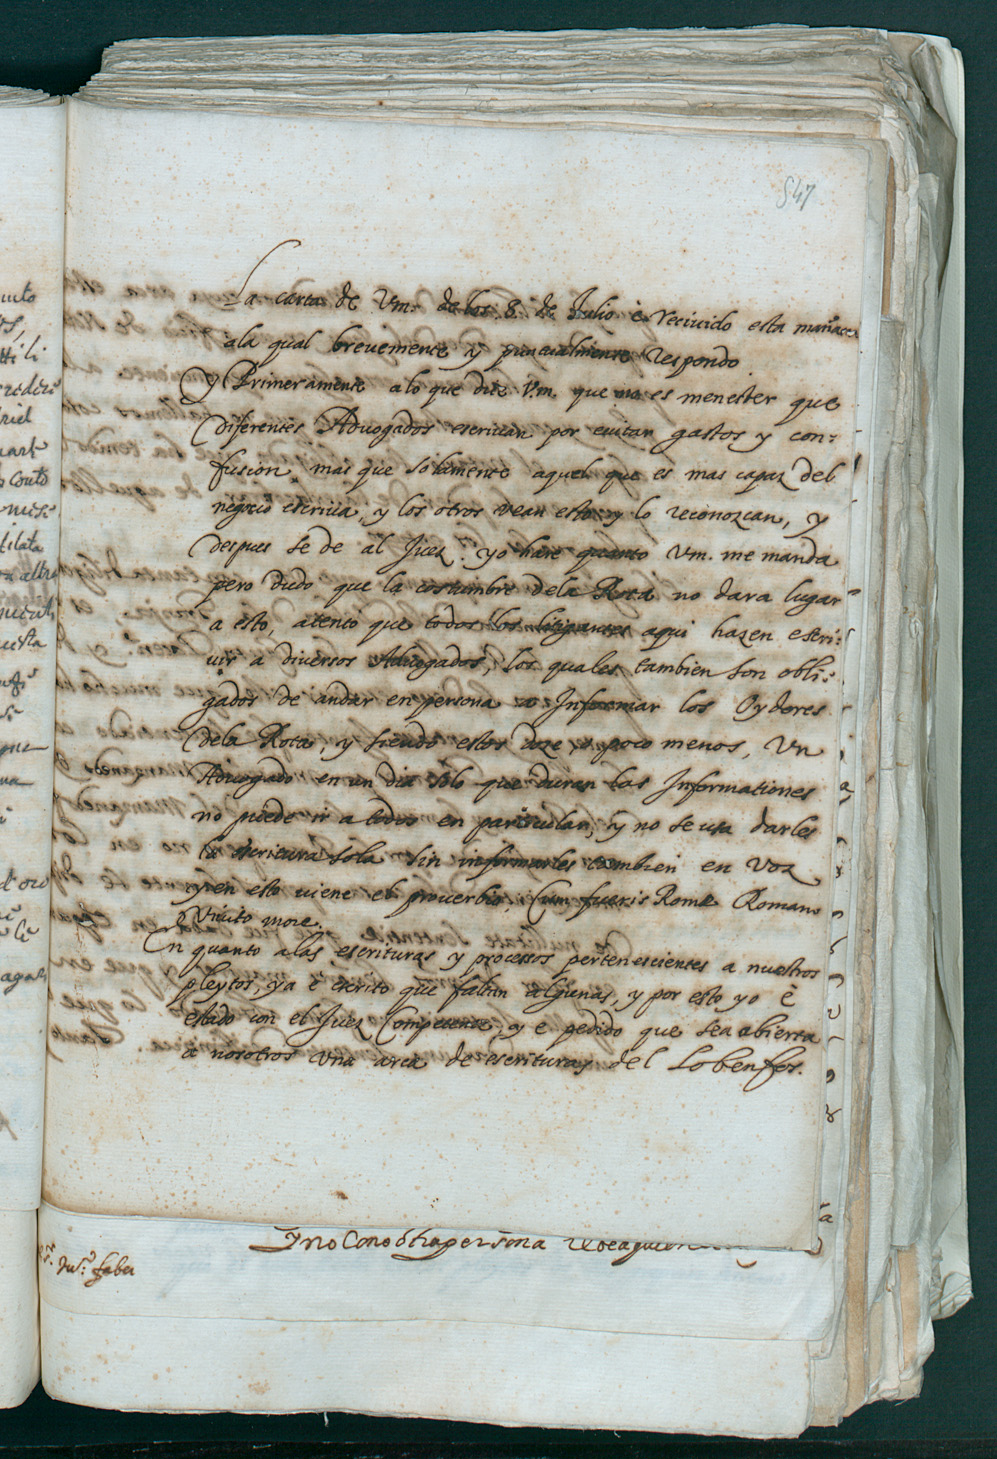 547
La carta de Vm. de los 8. de Julio è recivido esta mañana
ala qual brevemente y puncualmente respondo.
Y Primeramente alo que dize Vm. que no es menester que
diferentes Advogados escrivan por evitar gastos y con:
fusion, mas que solamente aquel que es mas capaz del
negocio escriva, y los otros vean esto y lo reconozcan, y
despues se de al Juez. yo hare quanto Vm. me manda
pero dudo que la costumbre dela Rota no dara lugar
a esto, atento que todos los litigantes aqui hazen escri:
uir a diversos Advogados, los quales tambien son obli:
gados de andar en persona a Informar los Oydores
dela Rota, y siendo estos doze, o poco menos, Un
Advogado en un dia solo que duran las Informationes
no puede ir a todos en particular, y no se usa darles
la escritura sola sin informarles tambien en voz
y en esto viene el proverbio, Cum fueris Rome Romano
vivito more.
En quanto alas escrituras y processos pertenescientes a nuestros
pleytos, ya è escrito que faltan algunas, y por esto yo è
estado con el Juez Competente, y e pedido que sea abierta
a nosotros una arca de escrituras del Lobenfos.
Y no Como ótra persona
faber